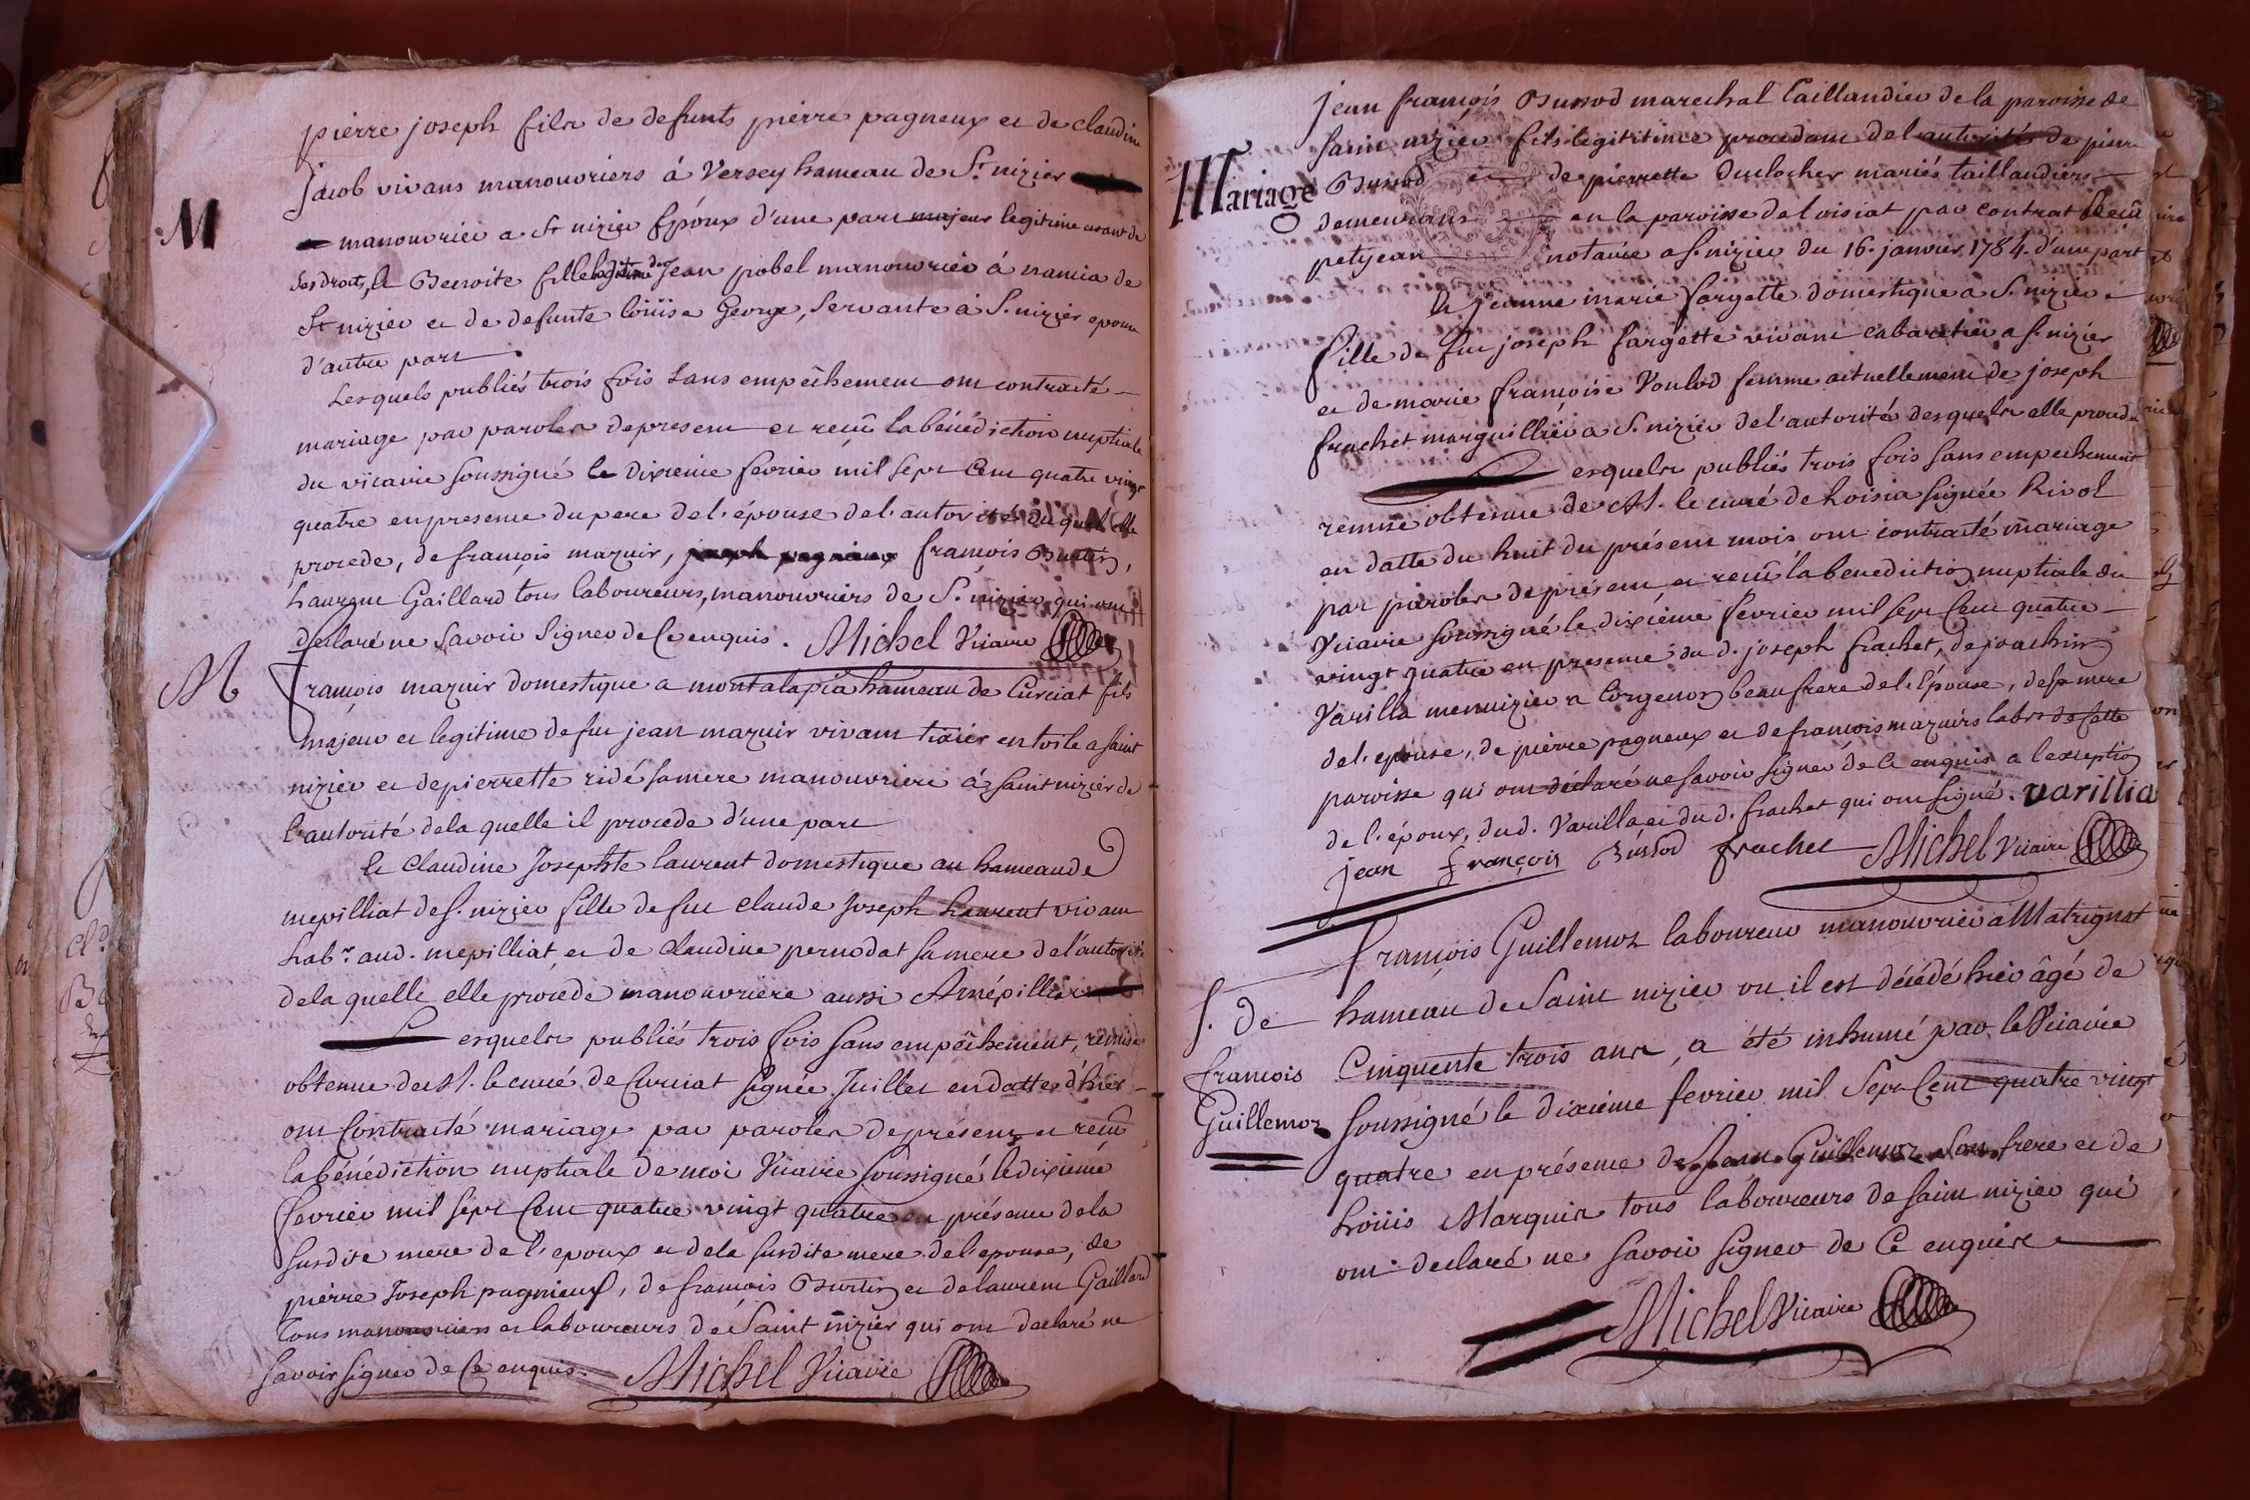 pierre joseph fils de defunts pierre pagneux et de claudine
jacob vivans manouvriers á Versey hameau de St. nizier
M
manouvrier a St nizier Epóux d'une part majeur legitime usant de
ses droits, et Benoite fille legitime de jean pobel manouvrier á namia de
St nizier et de defunte loüise George, servante à S. nizier epouse
d'autre part
Lesquels publiés trois fois sans empêchement ont contracté
mariage par paroles de present et reçû la bénédiction nuptiale
du vicaire soussigné le dixieme fevrier mil sept Cent quatre vingt
quatre en presence du pere de l'épouse de l'autorité du quel elle
procede, de françois mazuir, joseph pagnieux françois Burtin,
Laurent Gaillard tous laboureurs, manouvriers de S. nizier qui ont
declaré ne savoir signer de Ce enquis. Michel Vicaire
M
françois mazuir domestique a montalapia hameau de Curciat fils
majeur et legitime de feu jean mazuir vivant tixier en toile a saint
nizier et de pierrette ridé sa mere manouvriere á saint nizier de
l'autorité de la quelle il procede d'une part
et Claudine Josephte laurent domestique au hameau de
mepilliat de S. nizier fille de feu claude Joseph Laurent vivant
Labr. aud. mepilliat et de claudine pernodat sa mere de l'autorité
de la quelle elle procede manouvriere aussi A mépilliat
Lesquels publiés trois fois sans empêchement, remise
obtenue de M. le curé de Curciat signée Juillet en datte d'hier
ont Contracté mariage par paroles de présent et reçu
la bénédiction nuptiale de moi Vicaire soussigné le dixiémé
fevrier mil sept Cent quatre vingt quatre en présence de la
susdite mere de l'epoux et de la susdite mere de l'epouse, de
pierre Joseph pagnieux, de françois Burtin et de laurent Gaillard
Tous manouvriers et laboureurs de Saint nizier qui ont declaré ne
savoir signer de Ce enquis. Michel Vicaire
jean françois Bussod marechal taillandier de la paroisse de
saint nizier fils legititime procedant de l'autorité de pierre
Mariage
Bussod et de pierrette Duclocher mariés taillandiers
demeurans en la paroisse de loisiat par contrat Reçû
petyjean notaire a S. nizier du 16. janvier 1784. d'une part
et jeanne marie fargette domestique a S. nizier
fille de feu joseph fargette vivant cabaretier a S. nizier
et de marie françoise Voulod femme actuellement de joseph
frachet marguillier a S. nizier de l'autorité desquels elle procede
Lesquels publiés trois fois sans empechement
remise obtenue de M. le curé de Loisia signée Rivol
en datte du huit du présent mois ont contracté mariage
par paroles de présent et reçu la benediction nuptiale du
Vicaire soussigné le dixiéme fevrier mil sept Cent quatre
vingt quatre en presence du d. joseph frachet, de joachin
Varilla menuizier a Corgenon beau frere de l'Épouse, de sa mere
de l'epouse, de pierre pagneux et de françois mazuirs labrs de cette
paroisse qui ont déclaré ne savoir signer de Ce enquis a l'exception
de l'époux, du d. Varilla et du d. frachet qui ont signé. varillia
jean françois Bussod frachet Michel Vicaire
françois Guillemoz laboureur manouvrier á Matrignat
S. de
hameau de Saint nizier ou il est décédé hier âgé de
francois
Cinquente trois ans, a été inhumé par le Vicaire
Guillemoz
soussigné le dixiéme fevrier mil Sept Cent quatre vingt
quatre en présence de Jean Guillemoz son frere et de
Loüis Marquis tous laboureurs de saint nizier qui
ont declaré ne savoir signer de Ce enquis
Michel Vicaire